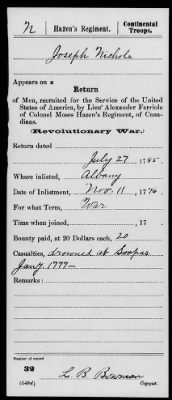 N
Hazen's Regiment.
Continental
Troops.
Joseph Nichols
Appears on a
Return
of Men, recruited for the Service of the United
States of America, by Lieut Alexander Ferriole
of Colonel Moses Hazen's Regiment, of Cana-
dians.
(Revolutionary War.)
Return dated
July 27 1785.
Where inlisted, Albany
Date of Inlistment, Nov. 11, 1776.
For what Term, War
Time when joined, , 17 .
Bounty paid, at 20 Dollars each, 20
Casualties, drowned at Soopas
Jany 1777—
Remarks:
Number of record:
32
L B Bowman
(548d)
Copyist.